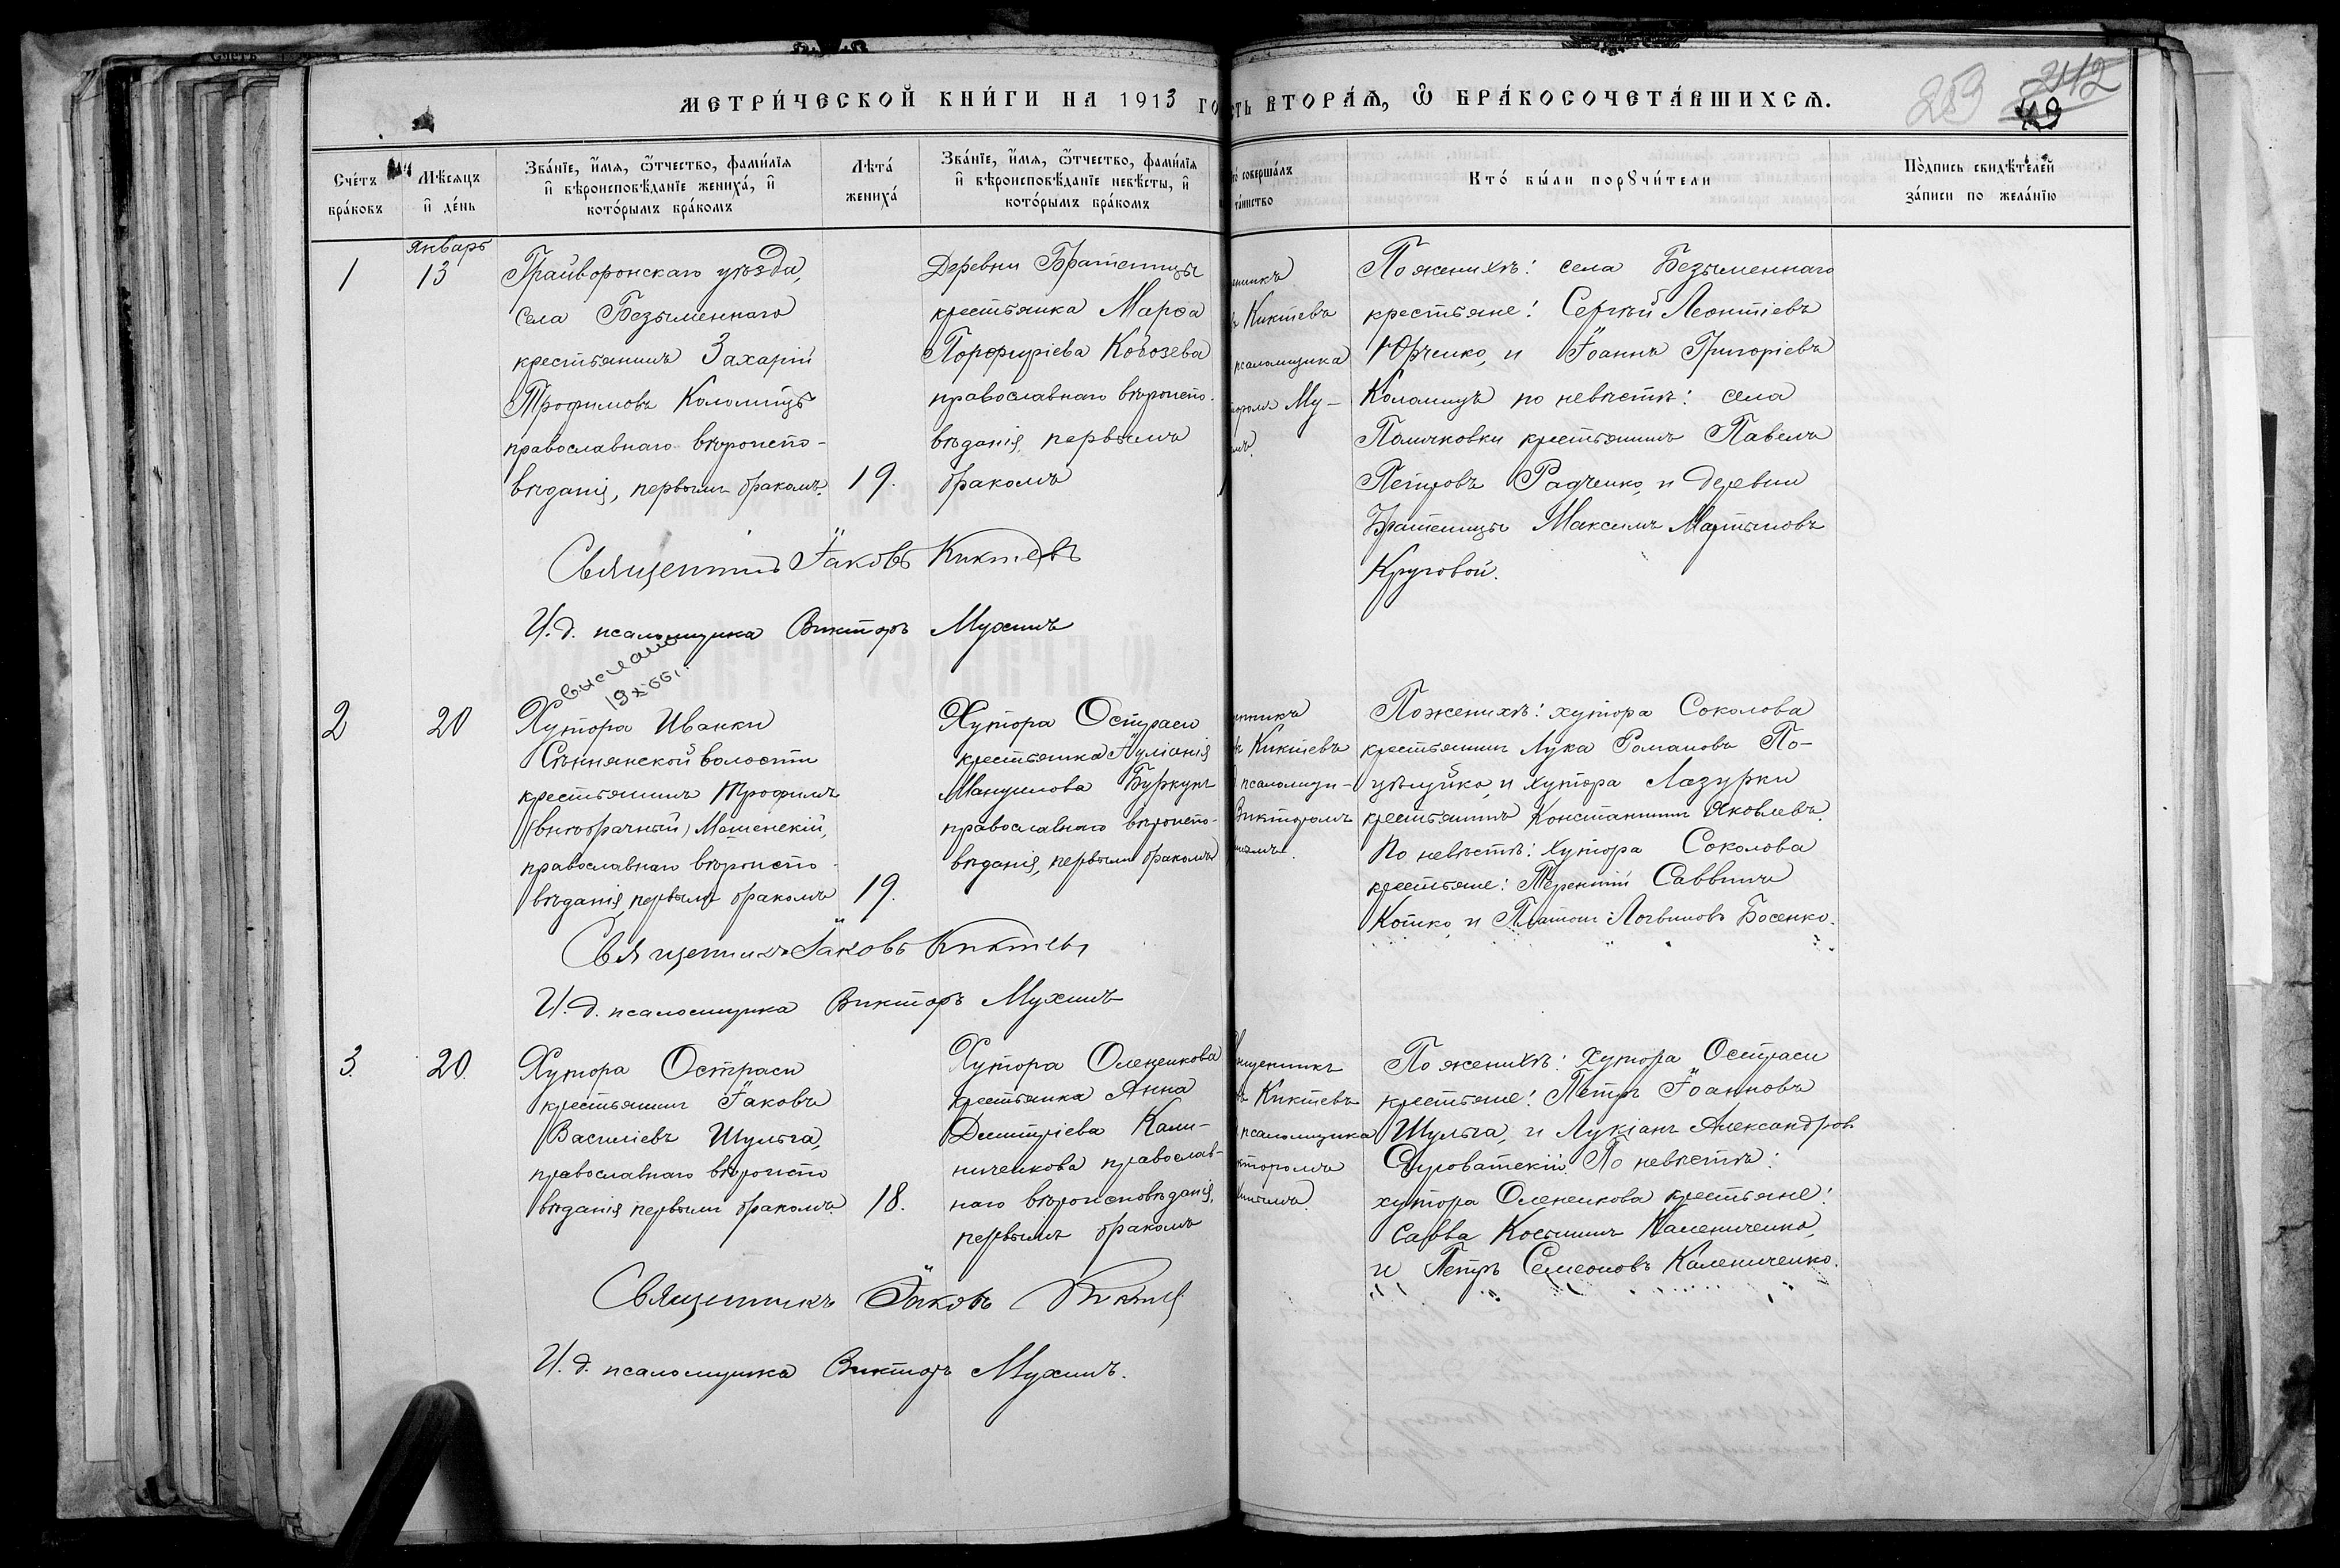 МЕТРИ́ЧЕСКОЙ КНИ́ГИ НА 1913 ГО
СТЬ ВТОРА́Ѧ, Ѿ БРАКОСОЧЕТА́ВШИХСѦ.
253
242
Сче́тъ бра́ковъ
Мѣ́сяцъ и҆ де́нь
Зва́нїе, и҆́мя, ѻ҆́тчество, фами́лїя
и҆ вѣроисповѣ́данїе жениха́, и҆
кото́рымъ бра́комъ
Лѣта́
жениха́
Зва́нїе, и҆́мя, ѻ҆́тчество, фами́лїя
и҆ вѣроисповѣ́данїе невѣ́сты, и҆
кото́рымъ бра́комъ
совершáлъ
та́инство
Кто́ бы́ли порꙋчи́тели
По́дпись свидѣ́телей
за́писи по жела́нїю
Январь
1
13
Грайворонскаго уѣзда,
села Безыменнаго
крестьянинъ Захарій
Трофимовъ Коломыцъ
православнаго вѣроиспо-
вѣданія, первымъ бракомъ.
19.
Деревни Братеницы
крестьянка Марѳа
Порфиріева Кобозева
православнаго вѣроиспо-
вѣданія, первымъ
бракомъ
енникъ
ъ Киктевъ
псаломщика
торомъ Му-
мъ.
По женихѣ: села Безыменнаго
крестьяне: Сергѣй Леонтіевъ
Юрченко, и Іоаннъ Григоріевъ
Коломыцъ по невѣстѣ: села
Поличковки крестьянинъ Павелъ
Петровъ Радченко, и деревни
Братеницы Максимъ Мартыновъ
Круговой.
Священникъ Іаковъ Киктевъ
И. д. псаломщика Викторъ Мухинъ
выслано
2
20
Хутора Иванки
Сѣннянской волости
крестьянинъ Трофимъ
(внѣбрачный) Матенскій,
православнаго вѣроиспо-
вѣданія, первымъ бракомъ
19.
Хутора Остраси
крестьянка Іуліанія
Мануилова Буркунъ
православнаго вѣроиспо-
вѣданія, первымъ бракомъ
енникъ
ъ Киктевъ
псаломщи-
Викторомъ
инымъ.
По женихѣ: хутора Соколова
крестьянинъ Лука Романовъ По-
цѣлуйко, и хутора Лазурки
крестьянинъ Константинъ Яковлевъ.
По невѣстѣ: хутора Соколова
крестьяне: Терентій Саввинъ
Котко, и Платонъ Логвиновъ Босенко.
Священникъ Іаковъ Киктевъ
И. д. псаломщика Викторъ Мухинъ
3.
20.
Хутора Остраси
крестьянинъ Іаковъ
Василіевъ Шульга,
православнаго вѣроиспо
вѣданія первымъ бракомъ.
18.
Хутора Оленикова
крестьянка Анна
Димитріева Кали-
ниченкова православ-
наго вѣроисповѣданія,
первымъ бракомъ
вященникъ
ъ Киктевъ
псаломщика
кторомъ
хинымъ.
По женихѣ: хутора Остраси
крестьяне: Петръ Іоанновъ
Шульга, и Лукіанъ Александровъ
Сыроватскій. По невѣстѣ:
хутора Оленикова крестьяне:
Савва Косьминъ Калениченко,
и Петръ Семеоновъ Калениченко.
Священникъ Іаковъ Киктевъ
И. д. псаломщика Викторъ Мухинъ.